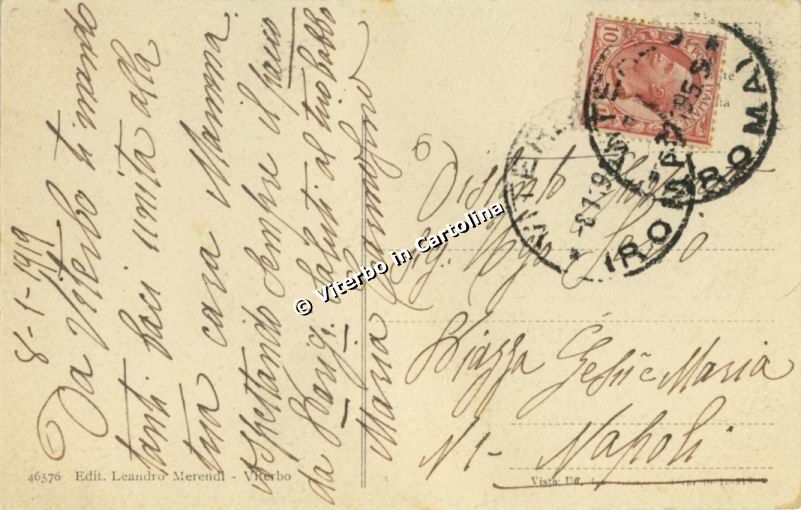 8-1-1919
Da Viterbo ti mando
tanti baci unita alla
tua cara Mamma.
Aspettando sempre il pacco
da Parigi. Saluti al tuo babbo
Maria
Distinto
Sig.
Piazza Gesù e Maria
N 1- Napoli
VITERBO
(ROMA)
8.1.19
10
© Viterbo in Cartolina
46576 Edit. Leandro Merendi - Viterbo
Visto: Uff.